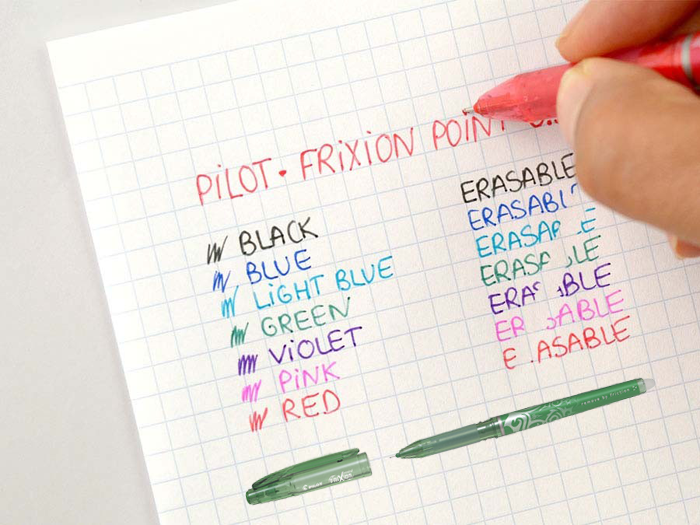 PILOT · FRIXION POINT
BLACK
BLUE
LIGHT BLUE
GREEN
VIOLET
PINK
RED
ERASABLE
ERASABL
ERASA E
ERASA LE
ERA BLE
ER ABLE
E ASABLE
PILOT FRIXION